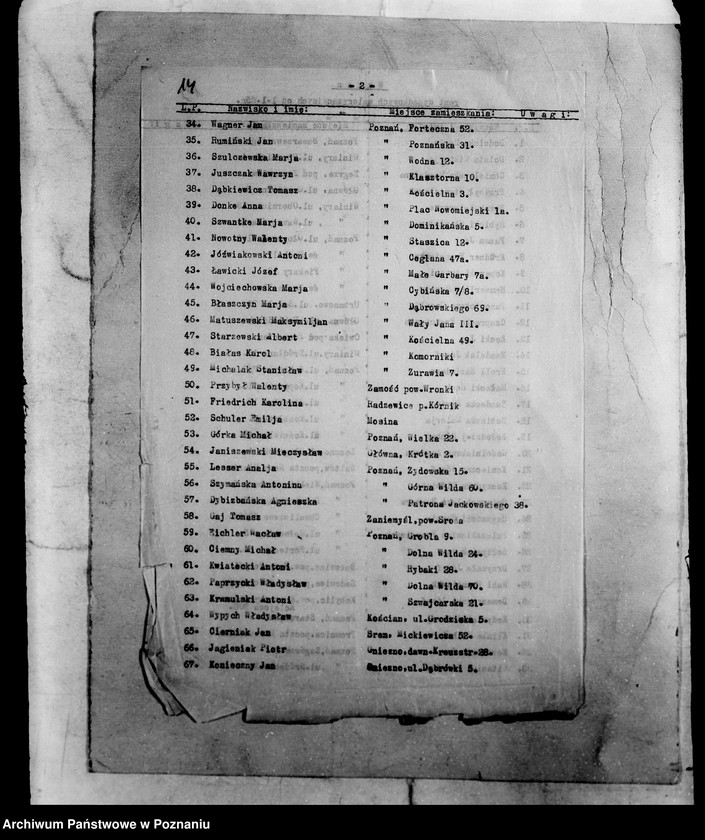 14
- 2 -
L.P. Nazwisko i imię: Miejsce zamieszkania: U w a g i:
34. Wagner Jan Poznań, Forteczna 52.
35. Rumiński Jan " Poznańska 31.
36. Szulczewska Marja " Wodna 12.
37. Juszczak Wawrzyn " Klasztorna 10.
38. Dąbkiewicz Tomasz " Kościelna 3.
39. Donke Anna " Plac Nowomiejski 1a.
40. Szwantke Marja " Dominikańska 5.
41. Nowotny Walenty " Staszica 12.
42. Jóźwiakowski Antoni " Ceglana 47a.
43. Ławicki Józef " Małe Garbary 7a.
44. Wojciechowska Marja " Cybińska 7/8.
45. Błaszczyn Marja " Dąbrowskiego 69.
46. Matuszewski Maksymiljan " Wały Jana III.
47. Starzewski Albert " Kościelna 49.
48. Białas Karol " Komorniki
49. Michalak Stanisław " Zurawia 7.
50. Przybył Walenty Zamość pow.Wronki
51. Friedrich Karolina Radzewice p.Kórnik
52. Schuler Emilja Mosina
53. Górka Michał Poznań, Wielka 22.
54. Janiszewski Mieczysław Główna, Krótka 2.
55. Lesser Analja Poznań, Zydowska 15.
56. Szymańska Antonina " Górna Wilda 60.
57. Dybizbańska Agnieszka " Patrona Jackowskiego 38.
58. Gaj Tomasz Zaniemyśl,pow.Środa
59. Eichler Wacław Poznań, Grobla 9.
60. Ciemny Michał " Dolna Wilda 24.
61. Kwiatecki Antoni " Rybaki 28.
62. Paprzycki Władysław " Dolna Wilda 70.
63. Kramulski Antoni " Szwajcarska 21.
64. Wypych Władysław Kościan, ul.Grodziska 5.
65. Cierniak Jan Srem, Mickiewicza 52.
66. Jagieniak Piotr Gniezno,dawn.Kreuzstr.28.
67. Konieczny Jan Gniezno,ul.Dąbrówki 5.
Archiwum Państwowe w Poznaniu